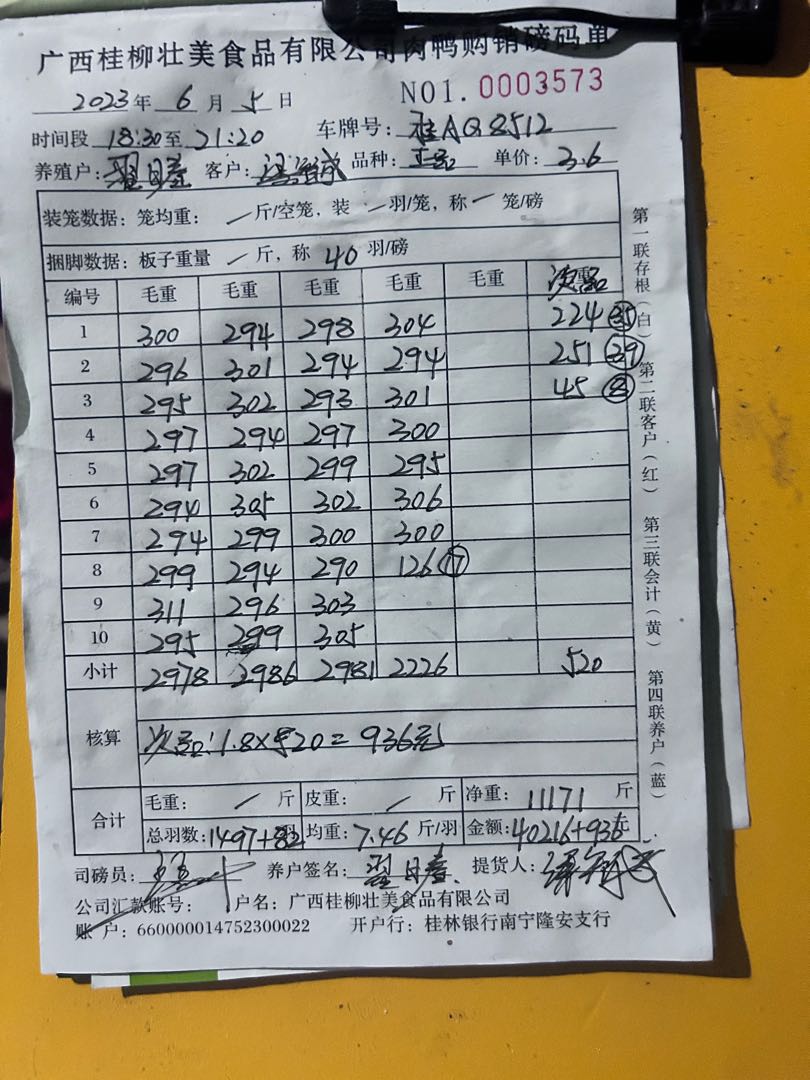 广西桂柳壮美食品有限公司肉鸭购销磅码单
2023年 6 月 5 日 NO1. 0003573
时间段 18:30至 21:20 车牌号: 桂AQ8512
养殖户: 客户: 品种: 正品 单价: 3.6
装笼数据: 笼均重: / 斤/空笼, 装 / 羽/笼, 称 / 笼/磅
捆脚数据: 板子重量 / 斤, 称 40 羽/磅
编号 毛重 毛重 毛重 毛重 毛重 次品
1 300 294 298 304 224 35
2 296 301 294 294 251 39
3 295 302 293 301 45 8
4 297 294 297 300
5 297 302 299 295
6 294 305 302 306
7 294 299 300 300
8 299 294 290 126 17
9 311 296 303
10 295 299 305
小计 2978 2986 2981 2226 520
核算 次品: 1.8×520=936元
合计 毛重: / 斤 皮重: / 斤 净重: 11171 斤
总羽数: 1497+82 羽 均重: 7.46 斤/羽 金额: 40216+936 元
司磅员: 养户签名: 提货人:
公司汇款账号: 户名: 广西桂柳壮美食品有限公司
账 户: 660000014752300022 开户行: 桂林银行南宁隆安支行
第一联存根(白) 第二联客户(红) 第三联会计(黄) 第四联养户(蓝)